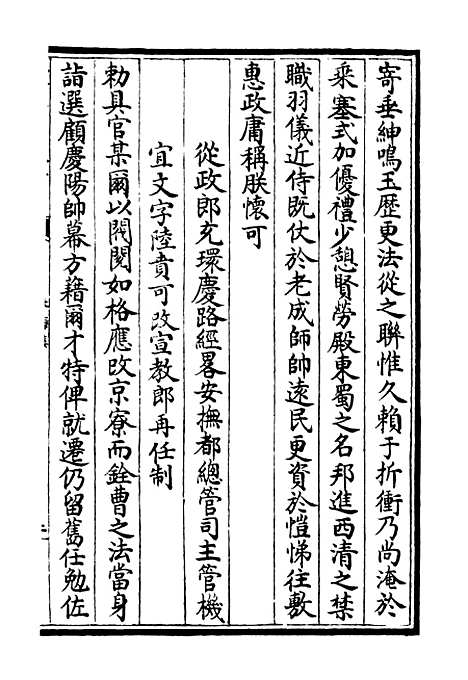 寄垂紳鳴玉歷更法從之聯惟久賴于折衝乃尚淹於
乗塞式加優禮少憩賢勞殿東蜀之名邦進西清之禁
職羽儀近侍既仗於老成師帥逺民更資於愷悌往敷
惠政庸稱朕懷可
從政郎充環慶路經畧安撫都總管司主管機
宜文字陸賁可改宣教郎再任制
勅具官某爾以閥閱如格應改京寮而銓曹之法當身
詣選顧慶陽帥幕方籍爾才特俾就遷仍留舊任勉佐